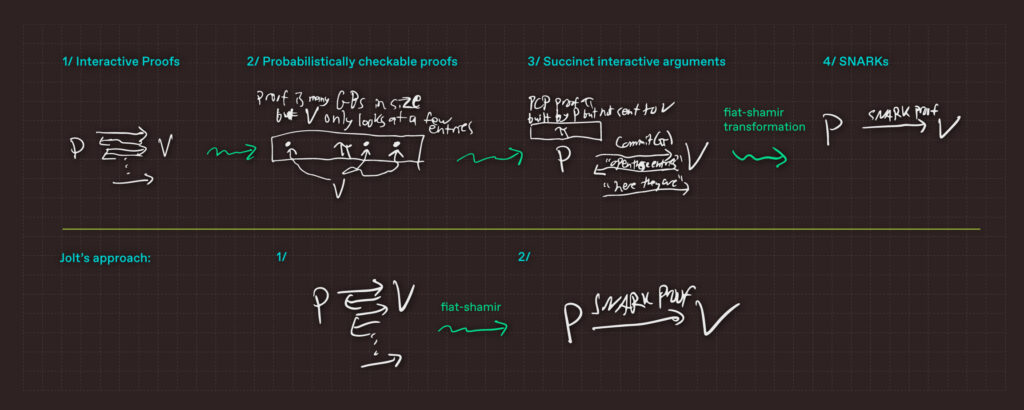 1/ Interactive Proofs
P V
2/ Probabilistically checkable proofs
Proof is many GBs in size
but V only looks at a few
entries
π
V
3/ Succinct interactive arguments
PCP proof is
built by P but not sent to V
π
P V
Commit(π)
"open these entries"
"here they are"
fiat-shamir
transformation
4/ SNARKs
P SNARK Proof V
Jolt's approach:
1/
P V
fiat-shamir
2/
P SNARK Proof V